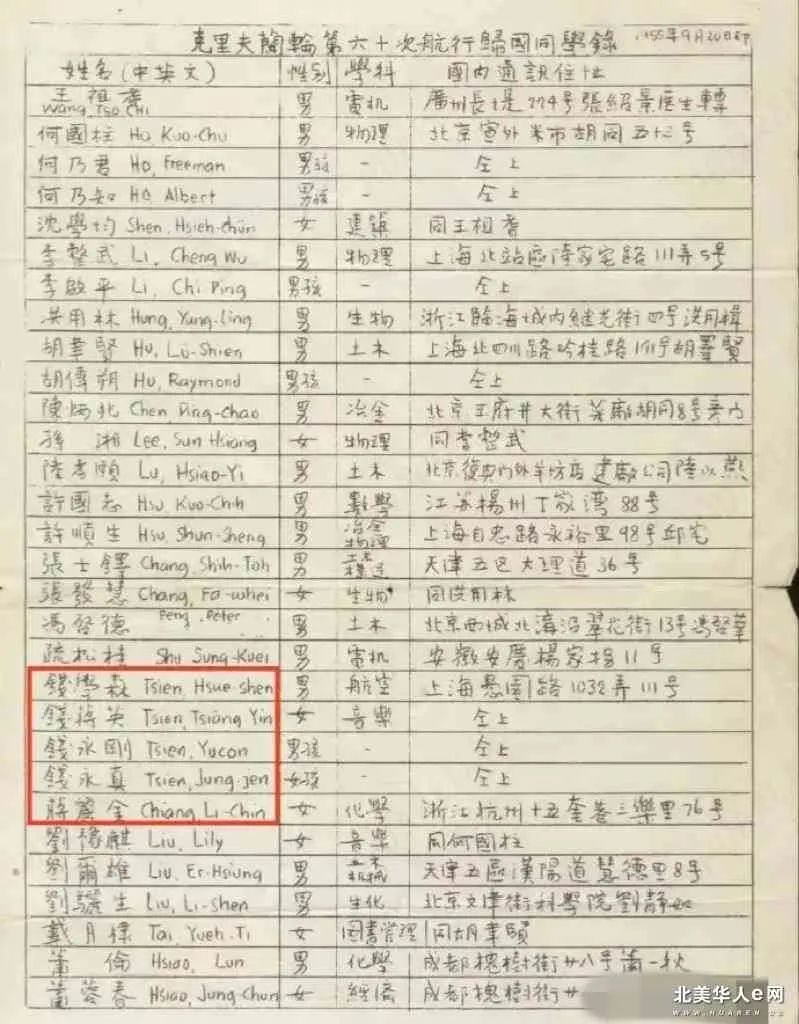 克里夫蘭輪第六十次航行歸國同學錄 1955年9月20日印
姓名(中英文) 性别 學科 國内通訊住址
王祖耆 Wang, Tso Chi 男 電机 廣州長堤274号張紹景医生轉
何國柱 Ho Kuo-Chu 男 物理 北京宣外米市胡同五十三号
何乃君 Ho, Freeman 男孩 - 仝上
何乃知 Ho Albert 男孩 - 仝上
沈學均 Shen, Hsieh-chün 女 建築 同王祖耆
李整武 Li, Cheng Wu 男 物理 上海北站區陸家宅路111弄5号
李啟平 Li, Chi Ping 男孩 - 仝上
洪用林 Hung, Yung-ling 男 生物 浙江臨海城内継光街四号洪用樟
胡聿賢 Hu, Lü-Shien 男 土木 上海北四川路吟桂路101号胡聖賢
胡傳朔 Hu, Raymond 男孩 - 仝上
陳炳兆 Chen, Ping-chao 男 冶金 北京王府井大街菜廠胡同8号旁门
孫湘 Lee, Sun Hsiang 女 物理 同李整武
陸孝頤 Lu, Hsiao-Yi 男 土木 北京復興门外羊坊店建廠公司陸以燕
許國志 Hsu, Kuo-Chih 男 數學 江苏楊州丁家湾88号
許順生 Hsu, Shun-Sheng 男 冶金物理 上海自忠路永裕里98号邱宅
張士鐸 Chang, Shih-Toh 男 天津五区大理道36号
張發慧 Chang, Fa-whei 女 生物 同洪用林
馮啓德 Feng, Peter 男 土木 北京西城北海沿翠花街13号馮啓華
疏松桂 Shu Sung-Kuei 男 電机 安徽安慶楊家拐11号
錢學森 Tsien, Hsue-shen 男 航空 上海愚園路1032弄111号
錢蔣英 Tsien, Tsiang Yin 女 音樂 仝上
錢永剛 Tsien, Yucon 男孩 - 仝上
錢永真 Tsien, Jung-jen 女孩 - 仝上
蔣麗金 Chiang, Li-Chin 女 化學 浙江杭州十五奎巷三樂里76号
劉豫麒 Liu, Lily 女 音樂 同何國柱
劉爾雄 Liu, Er-Hsiung 男 天津五區漢陽道慧德里8号
劉驪生 Liu, Li-shen 男 生化 北京文津街科學院劉静如
戴月棣 Tai, Yueh-Ti 女 図書管理 同胡聿賢
蕭倫 Hsiao, Lun 男 化學 成都槐樹街廿八号蕭一秋
蕭蓉春 Hsiao, Jung-Chun 女 経済 成都槐樹街廿
北美华人e网
WWW.HUAREN.US